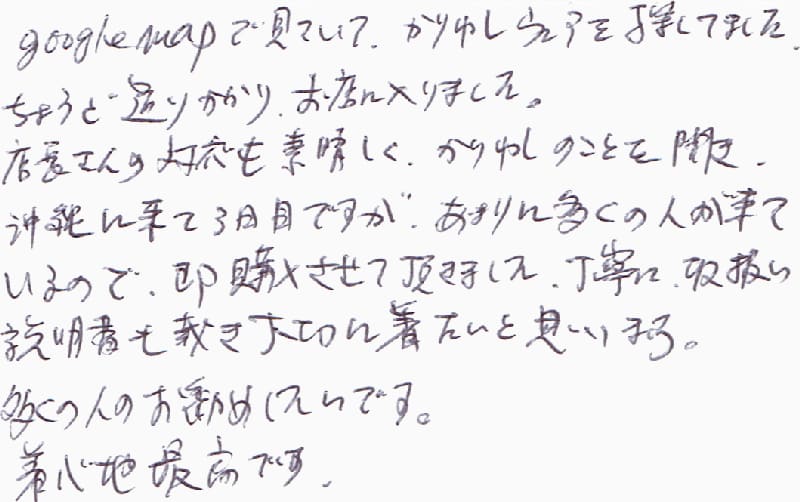 googlemapで見ていて、かりゆしウェアを探してました、
ちょうど通りかかり、お店に入りました。
店長さんの対応も素晴しく、かりゆしのことを聞き、
沖縄に来て3日目ですが、あまりに多くの人が着て
いるので、即購入させて頂きました、丁寧に、取扱い
説明書も戴き大切に着たいと思います。
多くの人のお勧めしたいです。
着心地最高です、